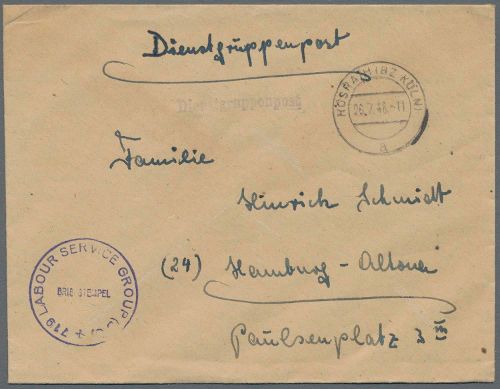 Dienstgruppenpost
RÖSRATH (BZ. KÖLN)
26.7.48.-11
a
Dienstgruppenpost
Familie
Hinrich Schmidt
(24) Hamburg-Altona
Paulsenplatz 3 III
719 LABOUR SERVICE GROUP
BRIEFSTEMPEL